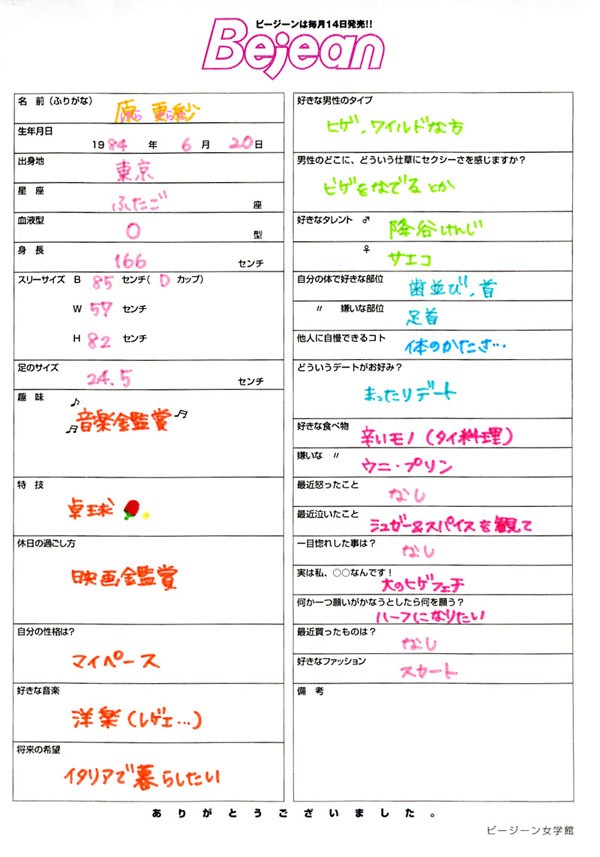 ビージーンは毎月14日発売!!
Bejean
名 前(ふりがな)
原 更紗
はら さらさ
生年月日
1984 年 6 月 20 日
出身地
東京
星 座
ふたご 座
血液型
O 型
身 長
166 センチ
スリーサイズ B 85 センチ( D カップ)
W 57 センチ
H 82 センチ
足のサイズ
24.5 センチ
趣 味
音楽鑑賞
特 技
卓球
休日の過ごし方
映画鑑賞
自分の性格は?
マイペース
好きな音楽
洋楽(レゲエ…)
将来の希望
イタリアで暮らしたい
好きな男性のタイプ
ヒゲ、ワイルドな方
男性のどこに、どういう仕草にセクシーさを感じますか?
ヒゲをなでるとか
好きなタレント ♂
降谷けんじ
♀
サエコ
自分の体で好きな部位
歯並び、首
〃 嫌いな部位
足首
他人に自慢できるコト
体のかたさ…
どういうデートがお好み?
まったりデート
好きな食べ物
辛いモノ(タイ料理)
嫌いな 〃
ウニ・プリン
最近怒ったこと
なし
最近泣いたこと
シュガー&スパイスを観て
一目惚れした事は?
なし
実は私、○○なんです!
大のヒゲフェチ
何か一つ願いがかなうとしたら何を願う?
ハーフになりたい
最近買ったものは?
なし
好きなファッション
スカート
備 考
ありがとうございました。
ビージーン女学館